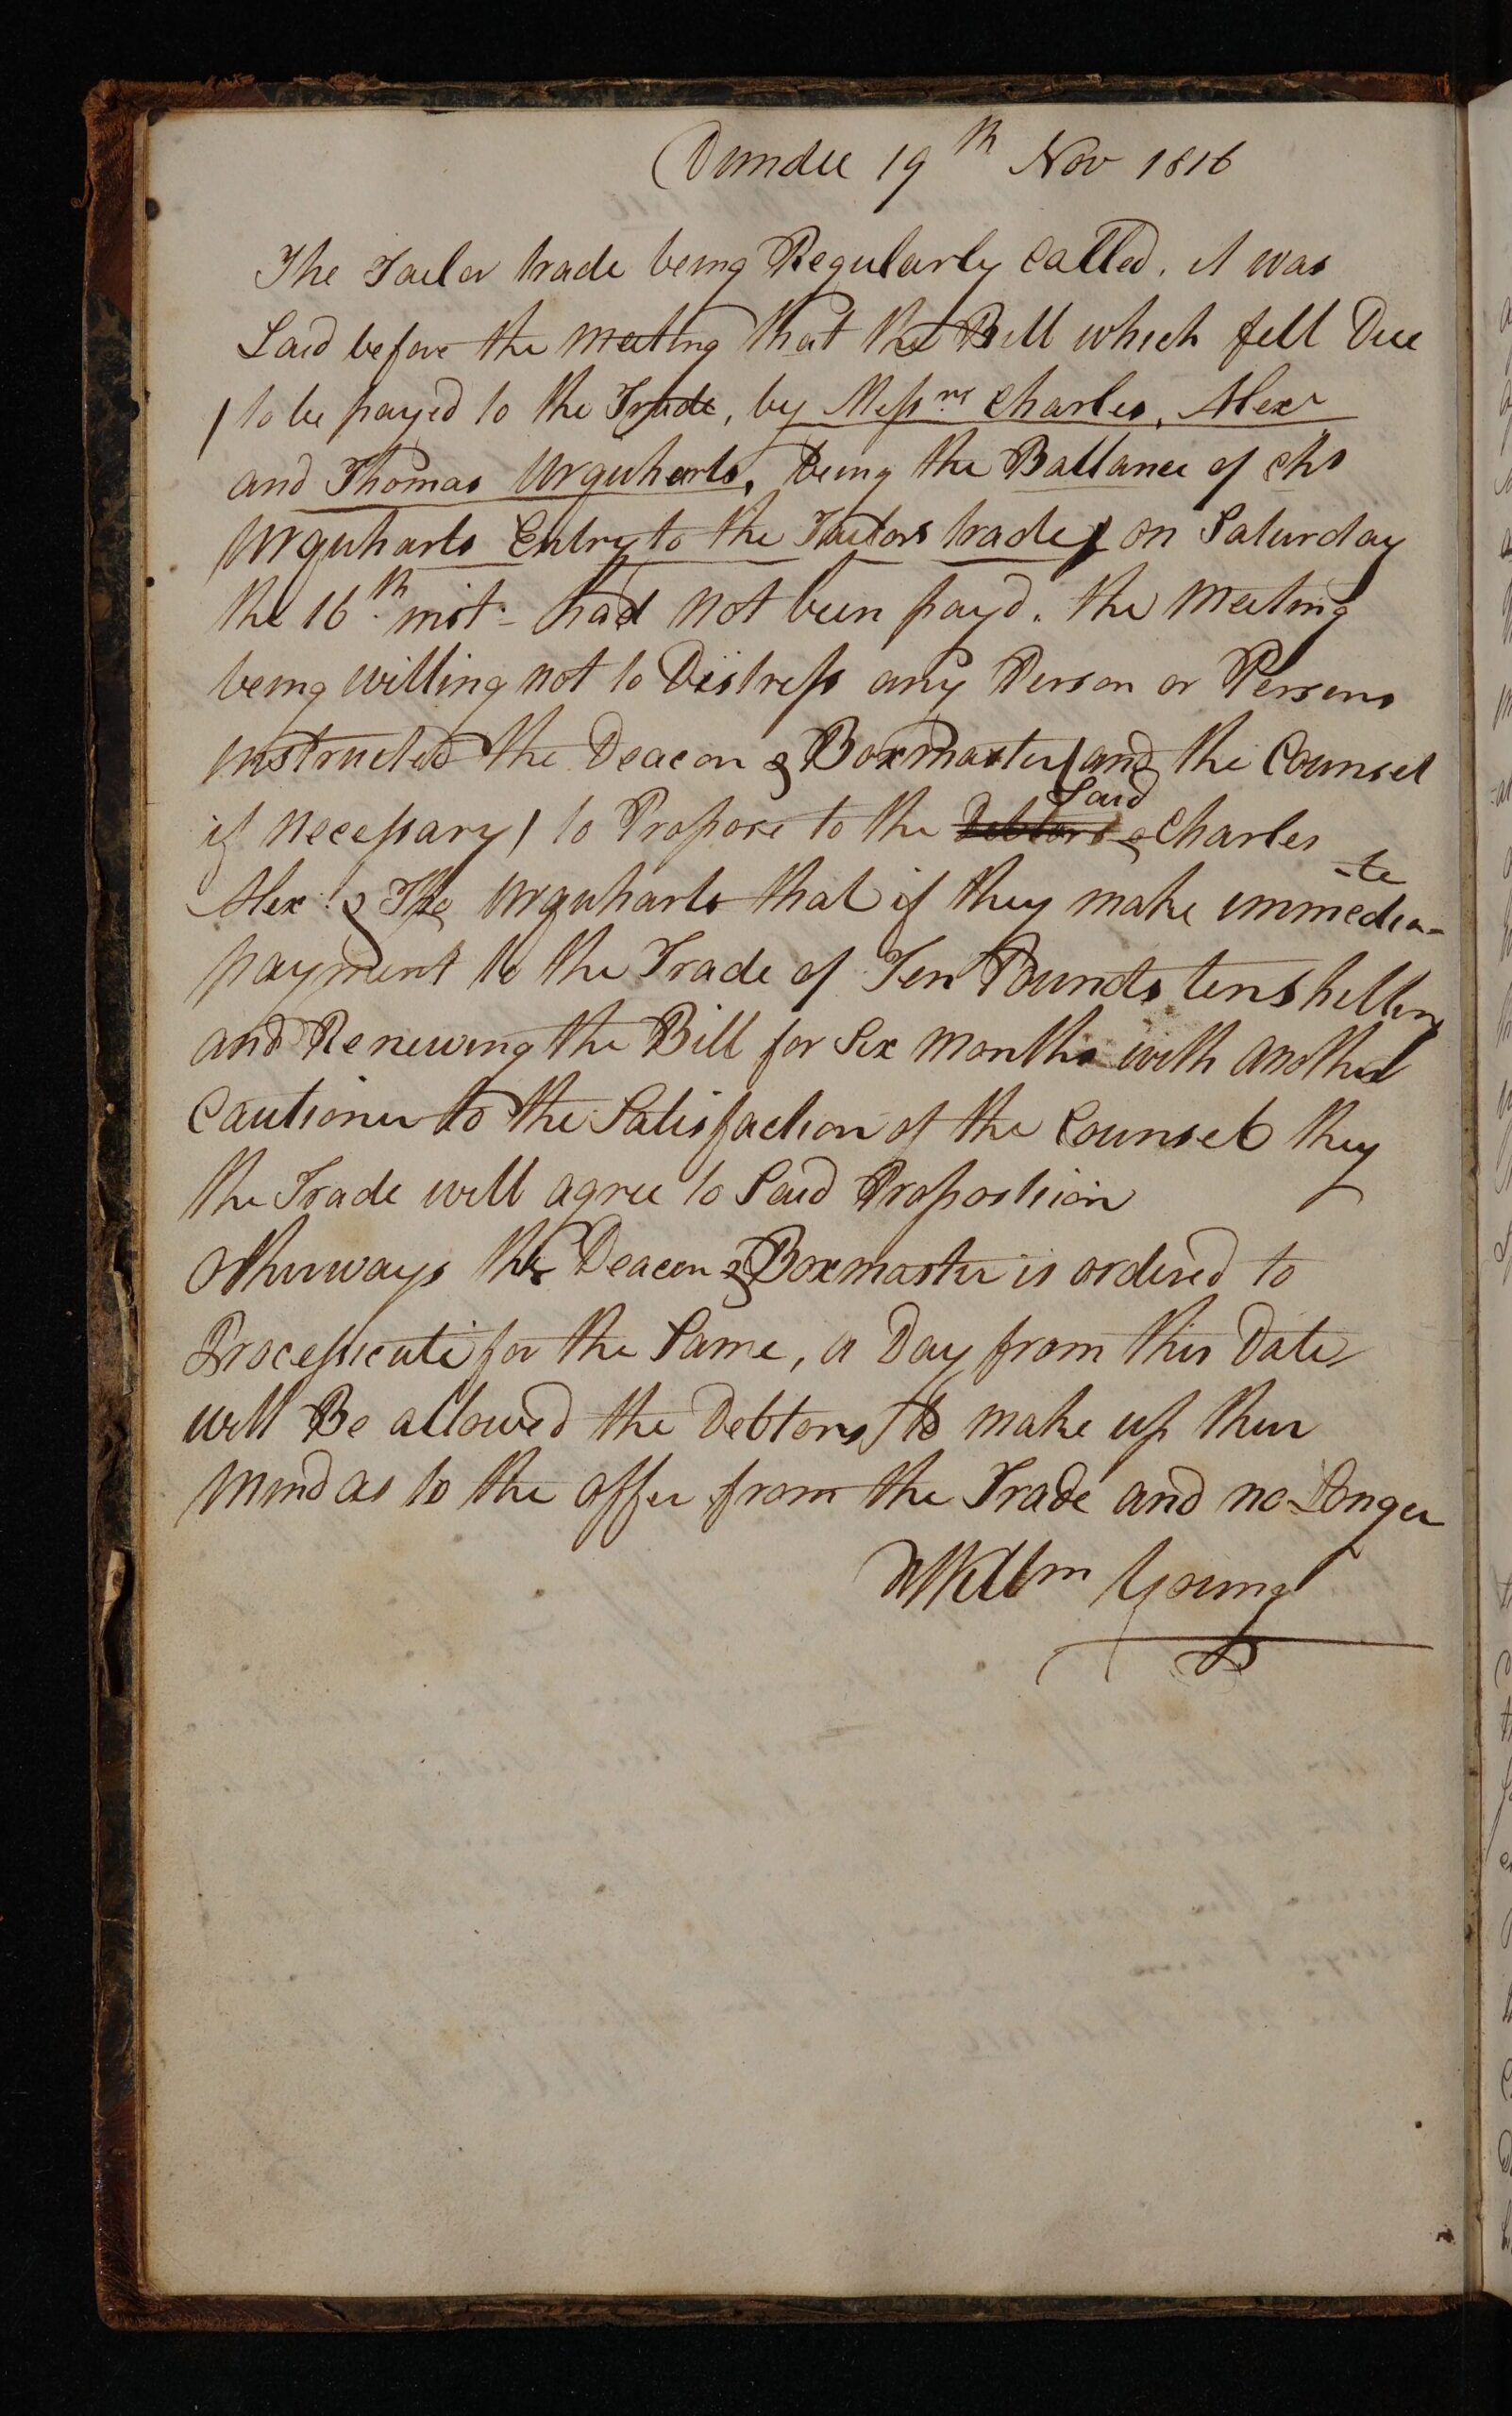 Dundee 19th Nov 1816
The Tailor trade being Regularly Called. it was
Laid before the meeting that the Bill which fell Due
/ to be payed to the Trade, by Messrs Charles, Alexr
and Thomas Urquharts, being the Ballance of Chs
Urquharts Entry to the Tailors trade / on Saturday
the 16th inst- had not been payd. the meeting
being willing not to Distress any Person or Persons
instructed the Deacon & Boxmaster / and the Counsel
if necessary / to Propose to the Debtors Said Charles
Alexr & Tho Urquharts that if they make immedia-te
payment to the Trade of Ten Pounds ten Shillings
and Renewing the Bill for Six months with another
Cautioner to the Satisfaction of the Counsel they
the Trade will agree to Said Proposition
Otherways the Deacon & Boxmaster is ordered to
for the Same, a Day from this Date
will Be allowed the Debtors to make up their
mind as to the offer from the Trade and no Longer
Willm Young